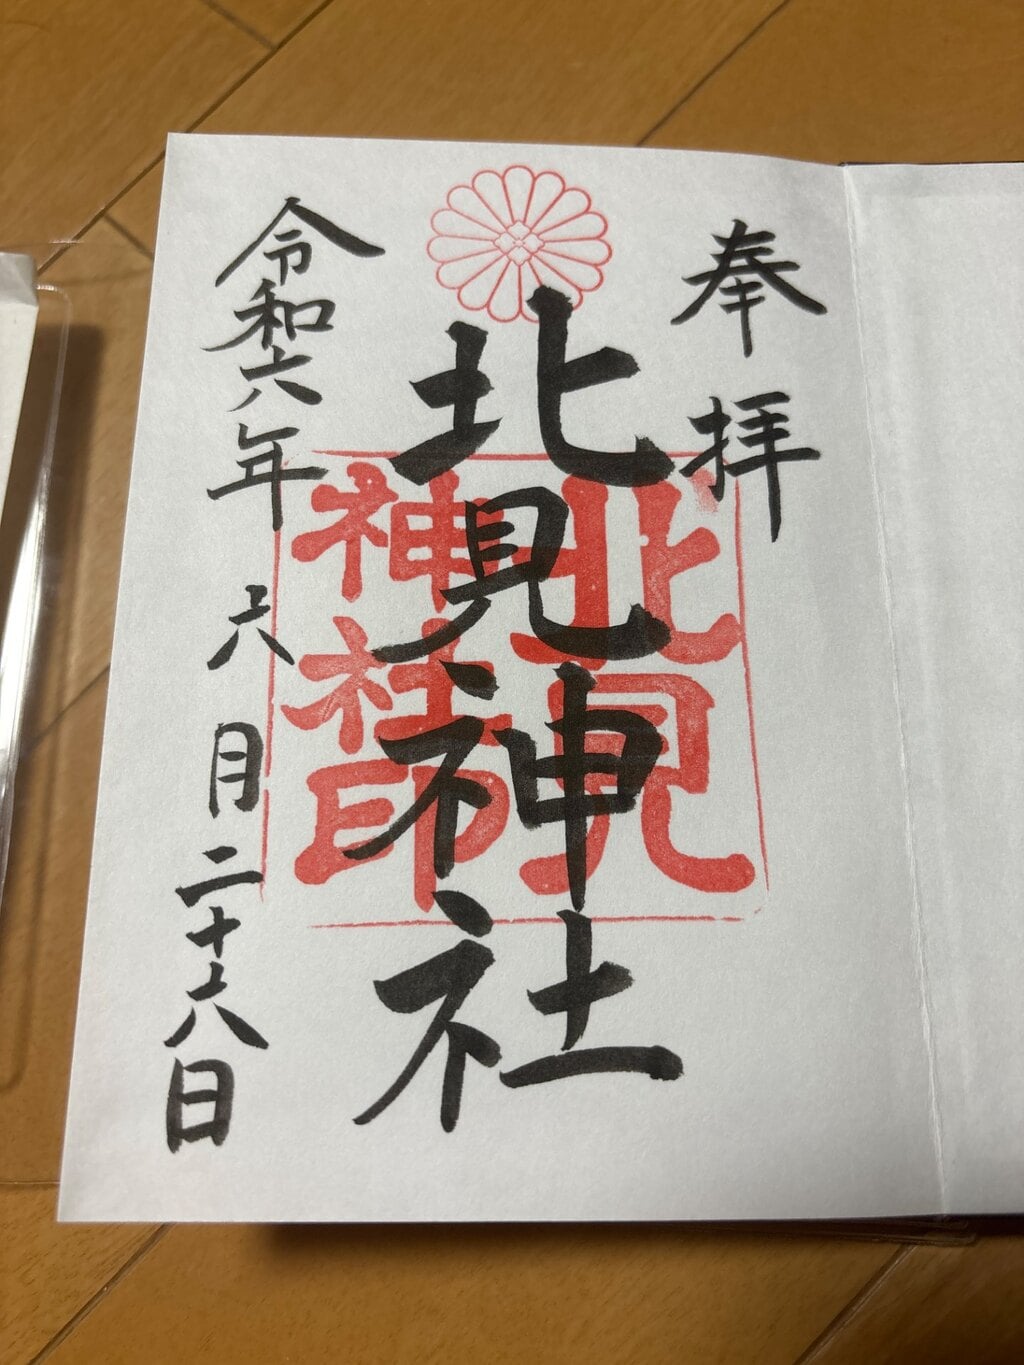 奉拝
北見神社
北見
神社印
令和六年六月二十八日